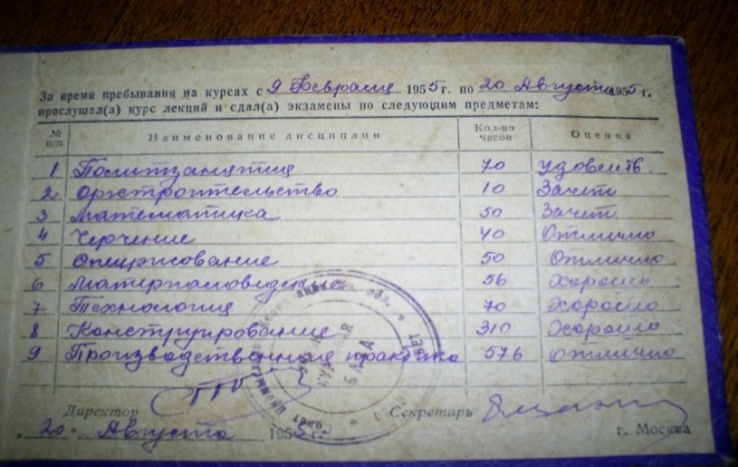 За время пребывания на курсах с 9 Февраля 1955 г. по 20 Августа 1955 г.
прослушал(а) курс лекций и сдал(а) экзамены по следующим предметам:
№ п/п Наименование дисциплин Кол-во часов Оценка
1 Политзанятия 70 удовлетв.
2 Оргстроительство 10 Зачет
3 Математика 50 Зачет
4 Черчение 40 Отлично
5 Спецрисование 50 Отлично
6 Материаловедение 56 Хорошо
7 Технология 70 Хорошо
8 Конструирование 310 Хорошо
9 Производственная практика 576 Отлично
Директор Секретарь
"20" Августа 1955 г. г. Москва